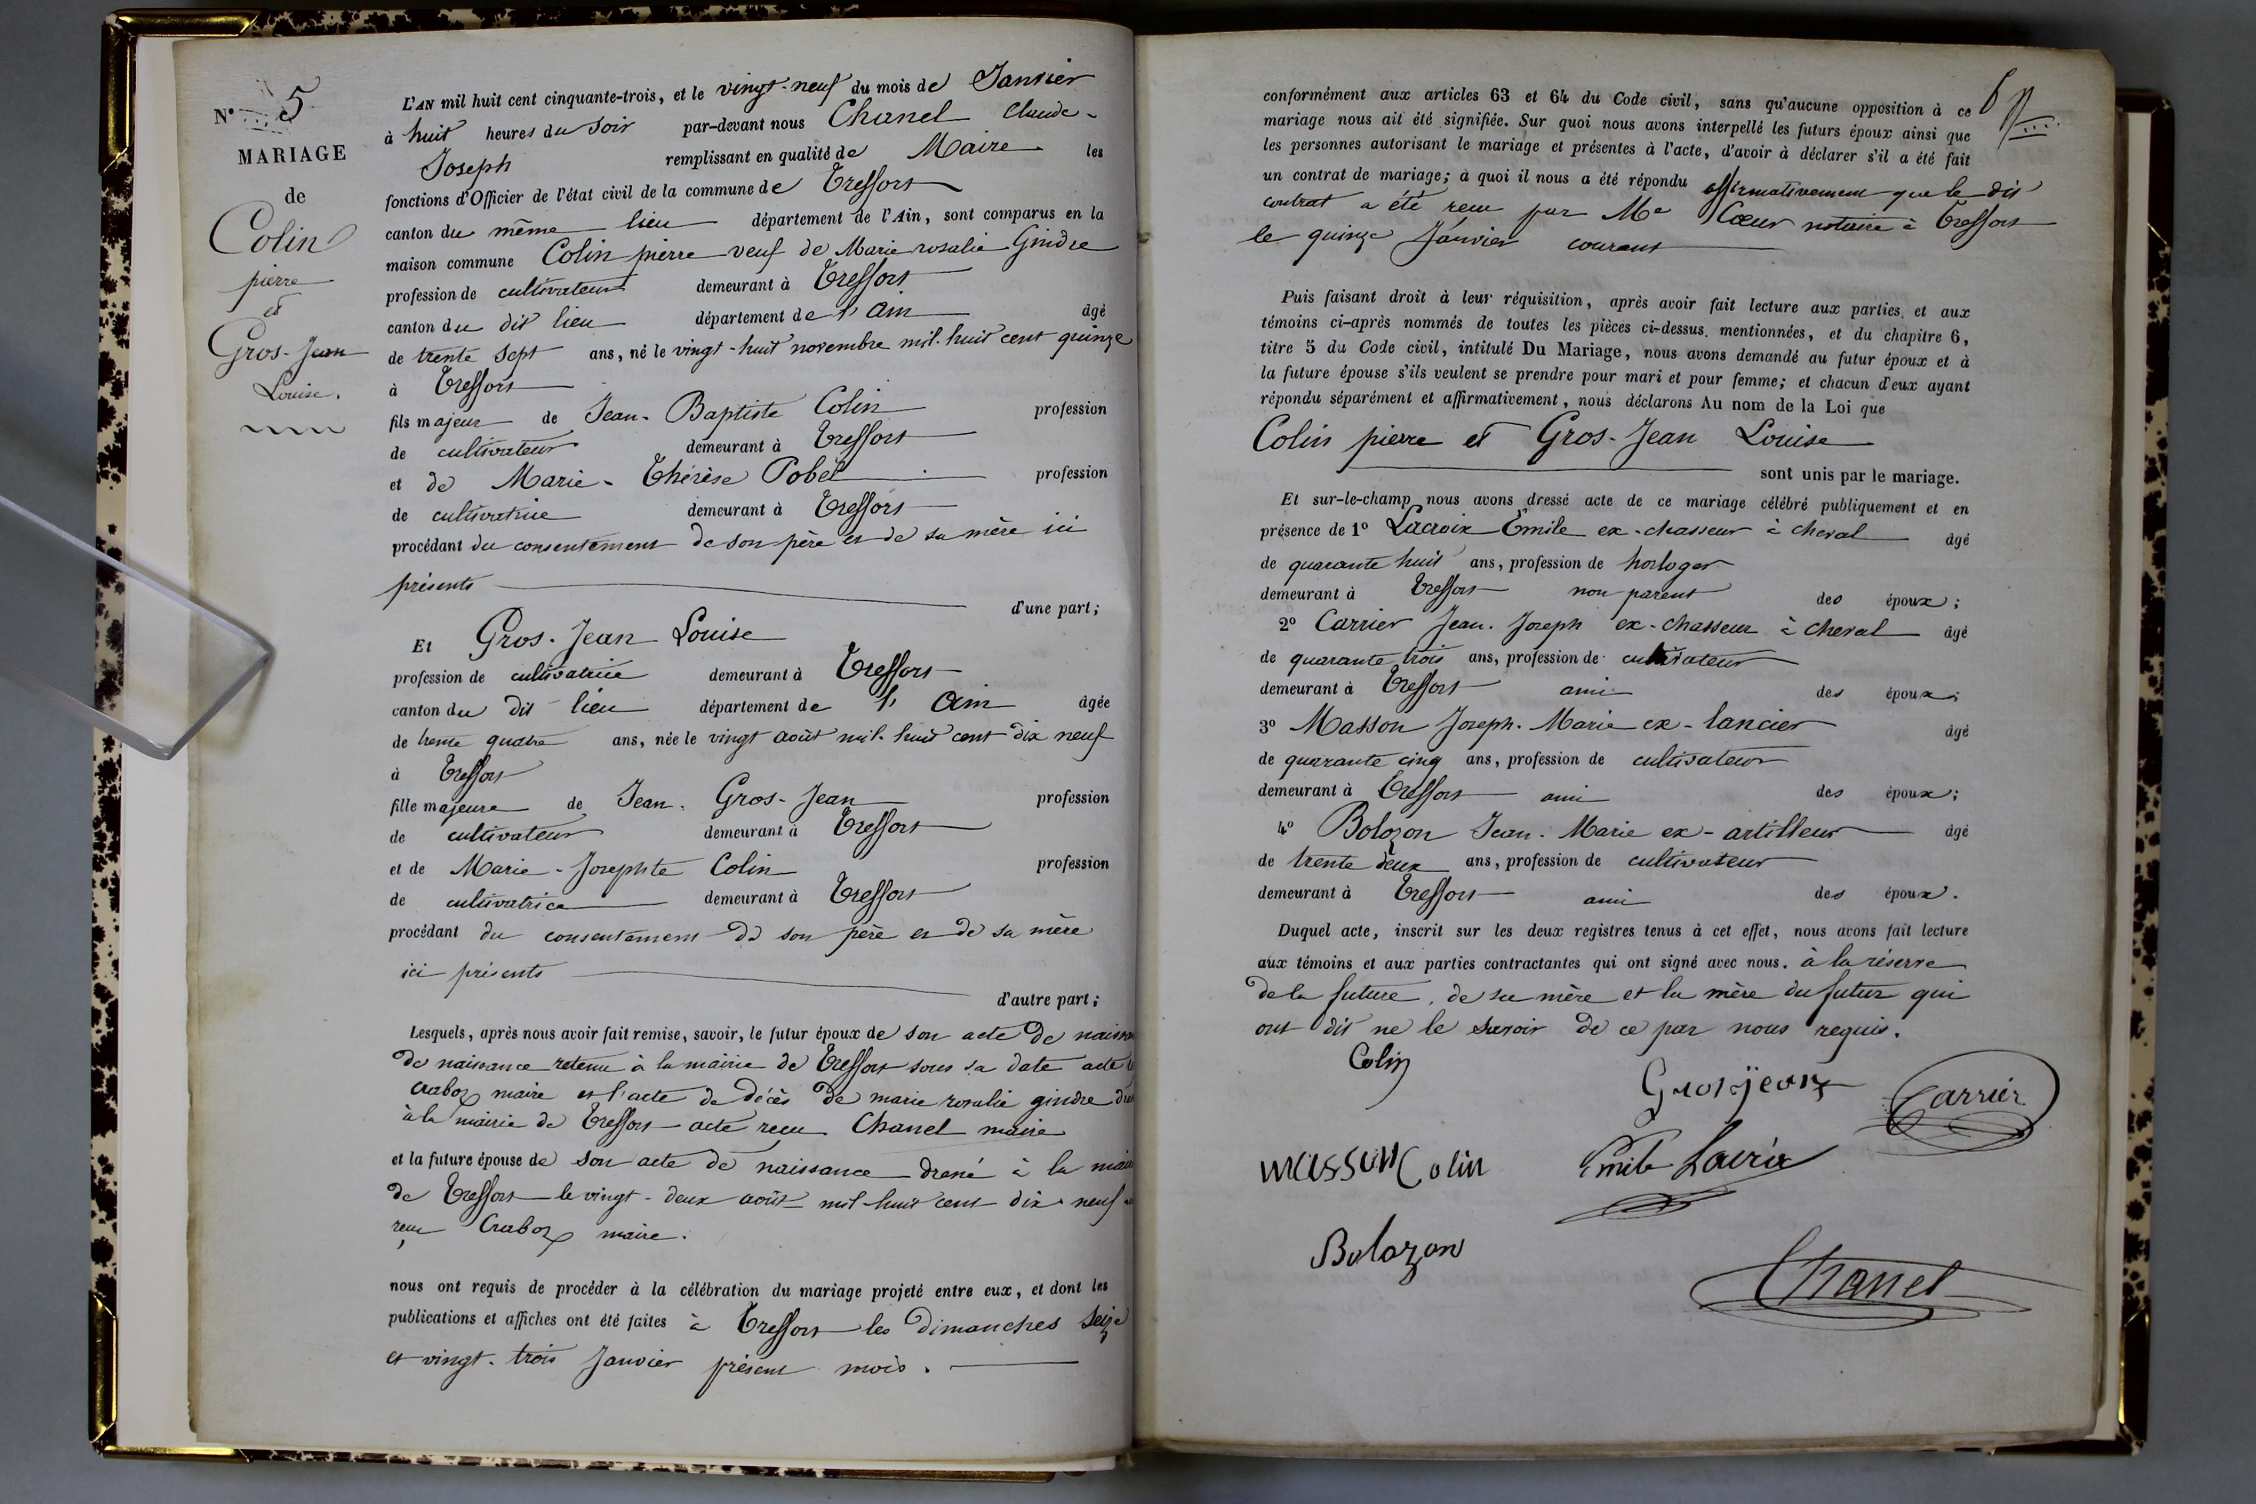 N° 5
MARIAGE
de
Colin
pierre
et
Gros-Jean
Louise.
L'AN mil huit cent cinquante-trois, et le vingt-neuf du mois de Janvier
à huit heures du soir par-devant nous Chanel Claude-
Joseph remplissant en qualité de Maire les
fonctions d'Officier de l'état civil de la commune de Treffort
canton du même lieu département de l'Ain, sont comparus en la
maison commune Colin pierre veuf de Marie rosalie Gindre
profession de cultivateur demeurant à Treffort
canton du dit lieu département de l'ain âgé
de trente sept ans, né le vingt-huit novembre mil-huit cent quinze
à Treffort
fils majeur de Jean-Baptiste Colin profession
de cultivateur demeurant à Treffort
et de Marie-Thérèse Pobel profession
de cultivatrice demeurant à Treffort
procédant du consentement de son père et de sa mère ici
présents
d'une part;
Et Gros-Jean Louise
profession de cultivatrice demeurant à Treffort
canton du dit lieu département de l'ain âgée
de trente quatre ans, née le vingt août mil-huit cent dix neuf
à Treffort
fille majeure de Jean-Gros-Jean profession
de cultivateur demeurant à Treffort
et de Marie-Josephte Colin profession
de cultivatrice demeurant à Treffort
procédant du consentement de son père et de sa mère
ici présents
d'autre part;
Lesquels, après nous avoir fait remise, savoir, le futur époux de son acte de
de naissance retenu à la mairie de Treffort sous sa date acte
maire et l'acte de décès de marie rosalie gindre
à la mairie de Treffort acte reçu Chanel maire
et la future épouse de son acte de naissance dressé à la
de Treffort le vingt-deux août mil-huit cent dix-neuf
reçu maire.
nous ont requis de procéder à la célébration du mariage projeté entre eux, et dont les
publications et affiches ont été faites à Treffort les dimanches seize
et vingt-trois Janvier présent mois.
conformément aux articles 63 et 64 du Code civil, sans qu'aucune opposition à ce
mariage nous ait été signifiée. Sur quoi nous avons interpellé les futurs époux ainsi que
les personnes autorisant le mariage et présentes à l'acte, d'avoir à déclarer s'il a été fait
un contrat de mariage; à quoi il nous a été répondu affirmativement que le dit
contrat a été reçu par Me Cœur notaire à Treffort
le quinze Janvier courant
Puis faisant droit à leur réquisition, après avoir fait lecture aux parties et aux
témoins ci-après nommés de toutes les pièces ci-dessus mentionnées, et du chapitre 6,
titre 5 du Code civil, intitulé Du Mariage, nous avons demandé au futur époux et à
la future épouse s'ils veulent se prendre pour mari et pour femme; et chacun d'eux ayant
répondu séparément et affirmativement, nous déclarons Au nom de la Loi que
Colin pierre et Gros-Jean Louise
sont unis par le mariage.
Et sur-le-champ nous avons dressé acte de ce mariage célébré publiquement et en
présence de 1° Lacroix Emile ex-chasseur à cheval âgé
de quarante huit ans, profession de horloger
demeurant à Treffort non parent des époux;
2° Carrier Jean-Joseph ex-chasseur à cheval âgé
de quarante trois ans, profession de cultivateur
demeurant à Treffort ami des époux;
3° Masson Joseph-Marie ex-lancier âgé
de quarante cinq ans, profession de cultivateur
demeurant à Treffort ami des époux;
4° Bolozon Jean-Marie ex-artilleur âgé
de trente deux ans, profession de cultivateur
demeurant à Treffort ami des époux.
Duquel acte, inscrit sur les deux registres tenus à cet effet, nous avons fait lecture
aux témoins et aux parties contractantes qui ont signé avec nous. à la réserve
de la future, de sa mère et la mère du futur qui
ont dit ne le savoir de ce par nous requis.
Colin
Grosjean
Carrier
masson Colin
Emile Lacroix
Bolozon
Chanel